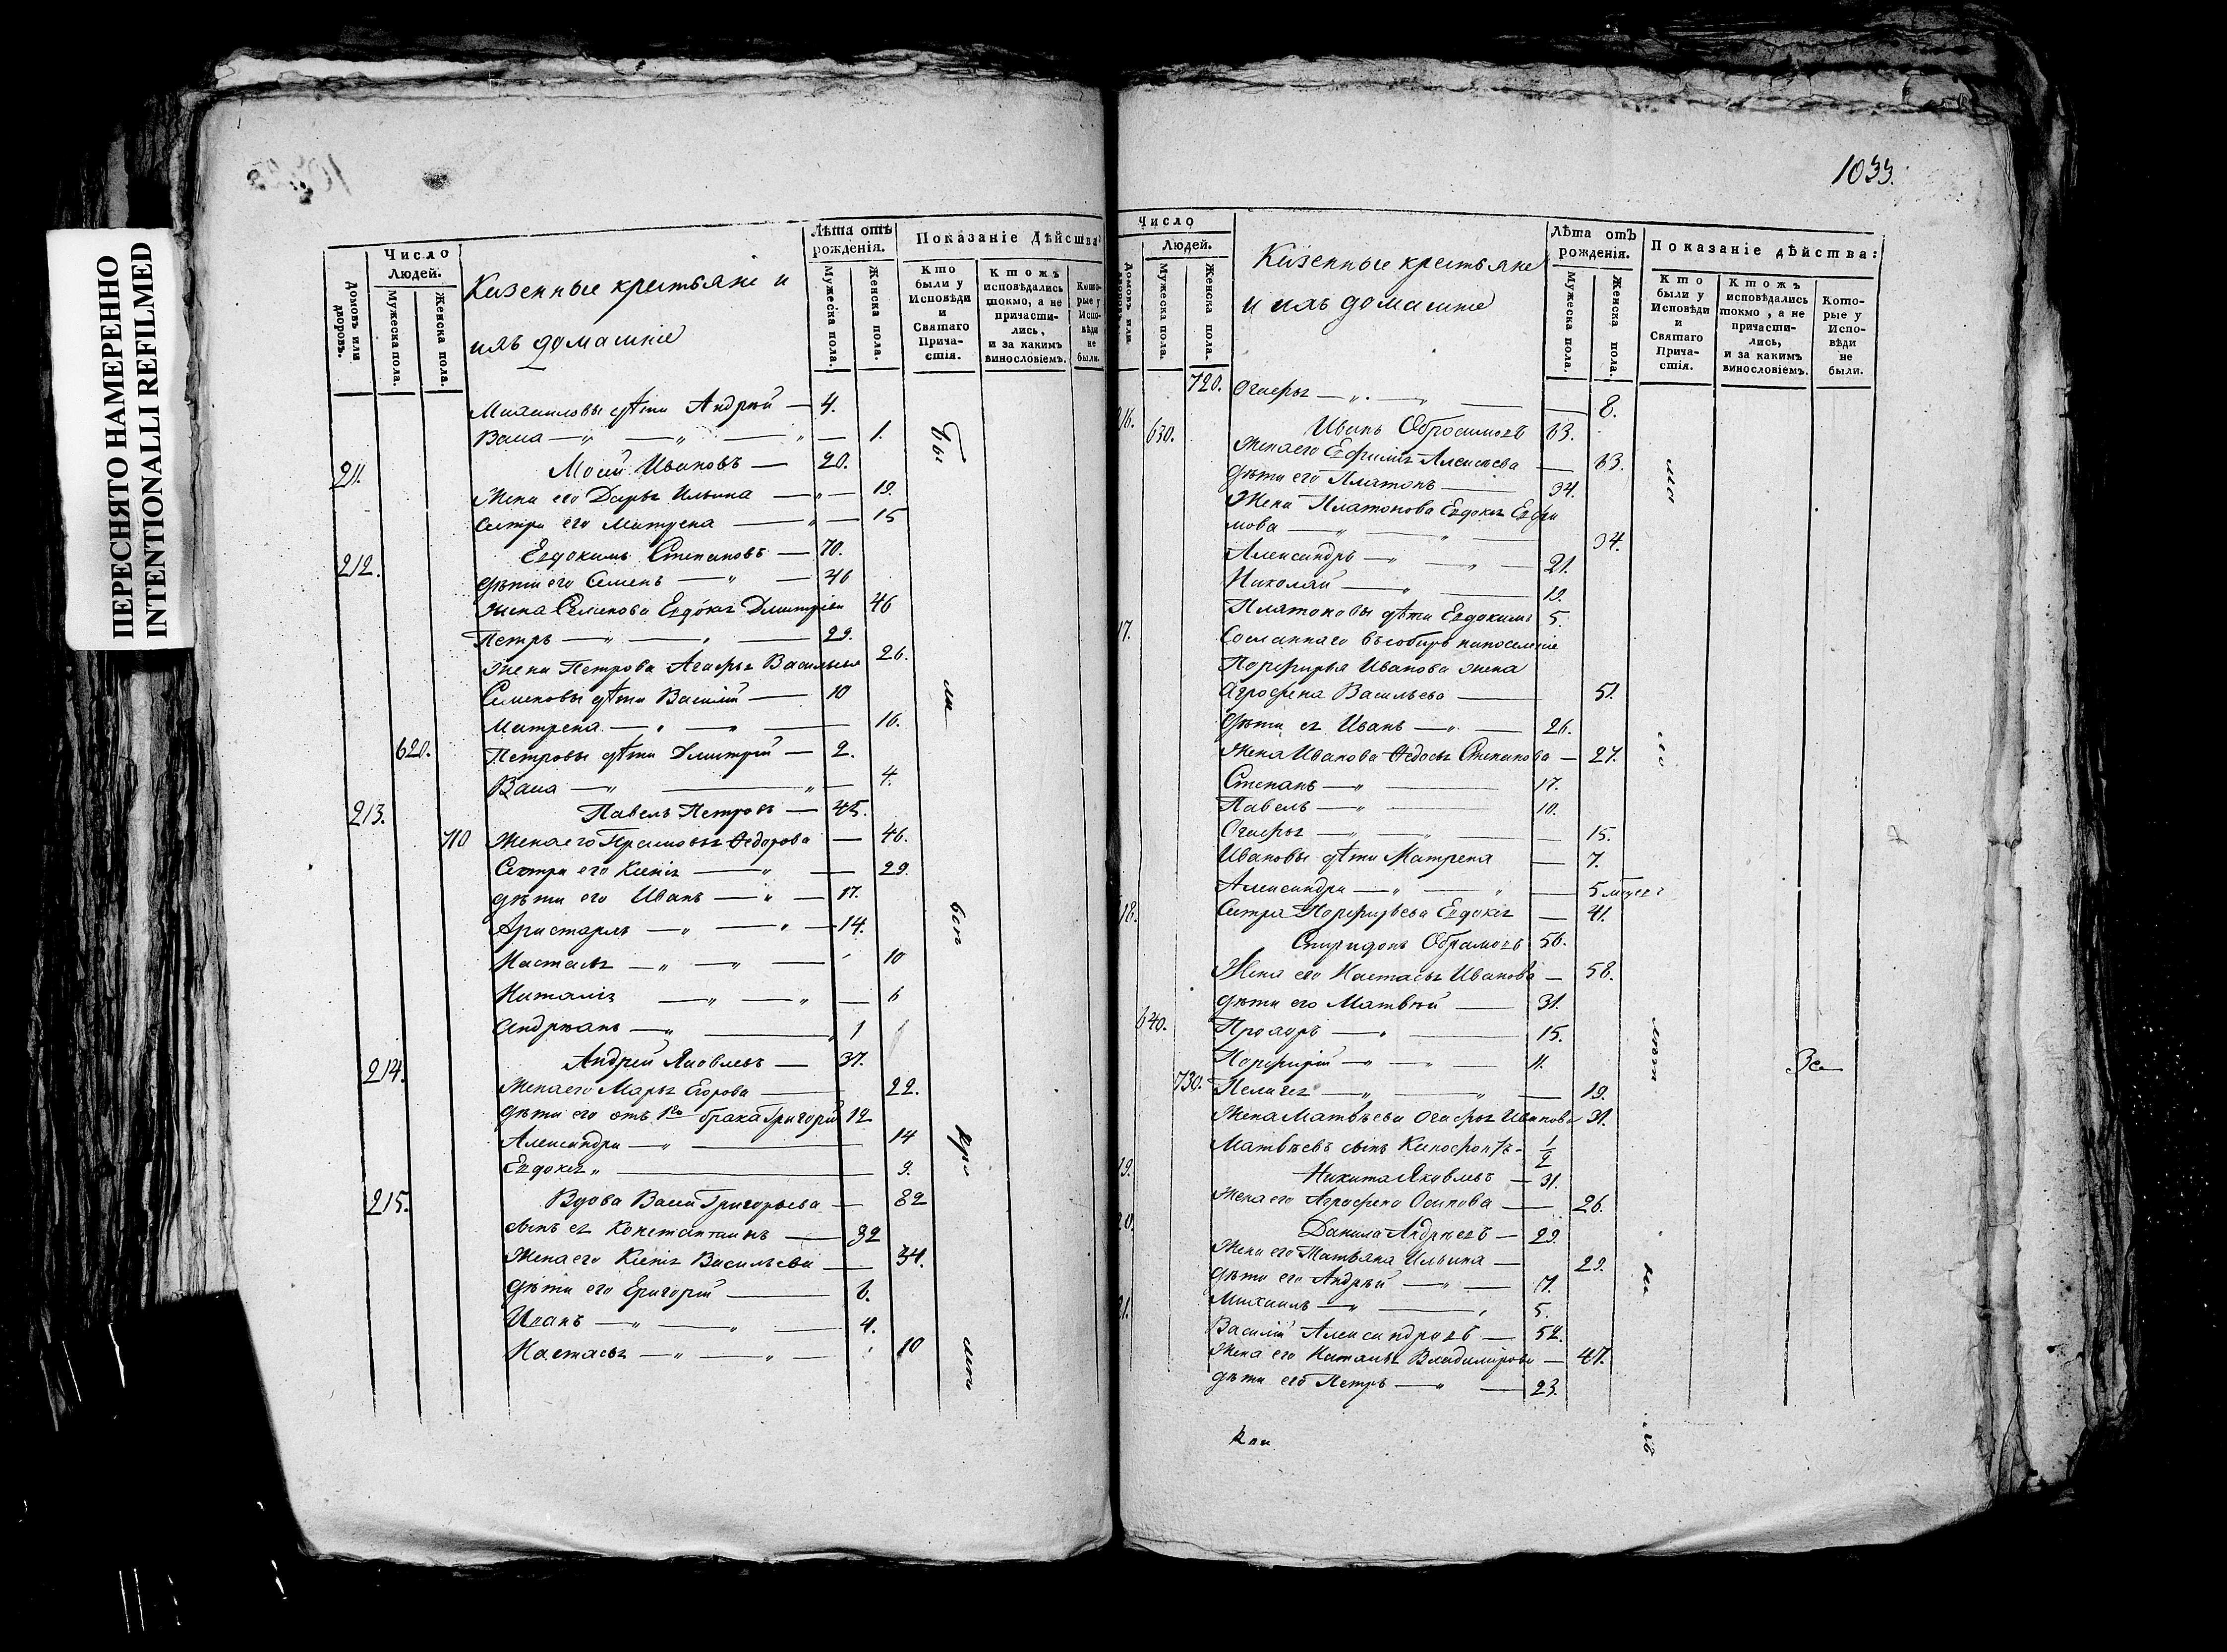 ПЕРЕСНЯТО НАМЕРЕННО
INTENTIONALLI REFILMED
Число
Людей.
Домовъ или дворовъ.
Мужеска пола.
Женска пола.
Казенные крестьяне и
ихъ домашніе
Лѣта отъ рожденія.
Мужеска пола.
Женска пола.
Показаніе Дѣйства:
Кто были у Исповѣди и Святаго Прича-стія.
Ктожъ исповѣдались токмо, а не причасти-лись, и за какимъ винословіемъ.
Кото-рые у Испо-вѣди не были.
Михаиловы дѣти Андрей — 4.
Васса — „ — „ — „ — 1.
211. Мосей Ивановъ — 20.
Жена его Дарья Ильина — „ — 19.
Сестра его Матрена — „ — 15
212. Евдокимъ Степановъ — 70.
дѣти его Семенъ — „ — 46
жена Семенова Евдокія Дмитріева 46
Петръ — „ — „ — 29.
жена Петрова Агафья Васильева 26.
Семеновы дѣти Василій — 10
Матрена — „ — „ — 16.
620. Петровы дѣти Дмитрій — 2.
Васса — „ — „ — 4.
213. Павелъ Петровъ — 45.
710 Жена его Прасковья Ѳедорова — 46.
Сестра его Ксенія — „ — 29.
дѣти его Иванъ — „ — 17.
Аристархъ — „ — „ — 14.
Настасья — „ — „ — 10
Наталія — „ — „ — 6
Андреянъ — „ — „ 1
214. Андрей Яковлевъ — 37.
Жена его Марья Егорова — 22.
дѣти его отъ 1го брака Григорій 12
Александра — „ — 14
Евдокія „ — 9.
215. Вдова Васса Григорьева — 82
сынъ ея Константинъ — 32
Жена его Ксенія Васильева — 34.
дѣти его Григорій — 6.
Иванъ — „ — „ — 4.
Настасья — „ — „ — 10
Бы
ли
всп
кре
мно
1033.
Число
Людей.
Домовъ или
Мужеска пола.
Женска пола.
Казенные крестьяне
и ихъ домашніе
Лѣта отъ рожденія.
Мужеска пола.
Женска пола.
Показаніе дѣйства:
Кто были у Исповѣди и Святаго Прича-стія.
Ктожъ исповѣдались токмо, а не причасти-лись, и за какимъ винословіемъ.
Кото-рые у Испо-вѣди не были.
720. Огафья — „ — „ — 8.
16. 630. Иванъ Обросимовъ 63.
Жена его Евфимія Алексеева — 63.
дѣти его Платонъ — 34.
Жена Платонова Евдокія Евфи
мова — „ — „ — 34.
Александръ — „ — „ — 21.
Николай — „ — 19.
Платоновы дѣти Евдокимъ 5.
17. Сосланнаго въ сибирь на поселеніе
Порфирья Иванова жена
Агрофена Васильева — 51.
дѣти ея Иванъ — „ — 26.
Жена Иванова Ѳедосья Степанова — 27.
Степанъ — „ — 17.
Павелъ — „ — 10.
Огафья — „ — „ — 15.
Ивановы дѣти Матрена — 7.
Александра — „ — „ — 5 месяц.
Сестра Порфирьева Евдокія — 41.
18. Спиридонъ Обрамовъ 56.
Жена его Настасья Иванова — 58.
дѣти его Матвѣй — 31.
640. Прохоръ — „ — 15.
Порфирій — „ — „ — 11.
730. Пелагея — „ — „ — 19.
Жена Матвѣева Огафья Иванова 31.
Матвѣевъ сынъ Ксенофонтъ — 1/2
19. Никита Яковлевъ — 31.
Жена его Агрофена Осипова — 26.
20. Данила Андреевъ — 29.
Жена его Татьяна Ильина — 29.
дѣти его Андрей — „ — 7.
Михаилъ — „ — „ 5.
21. Василій Александровъ — 52.
Жена его Наталья Владимірова — 47.
дѣти его Петръ — „ — 23.